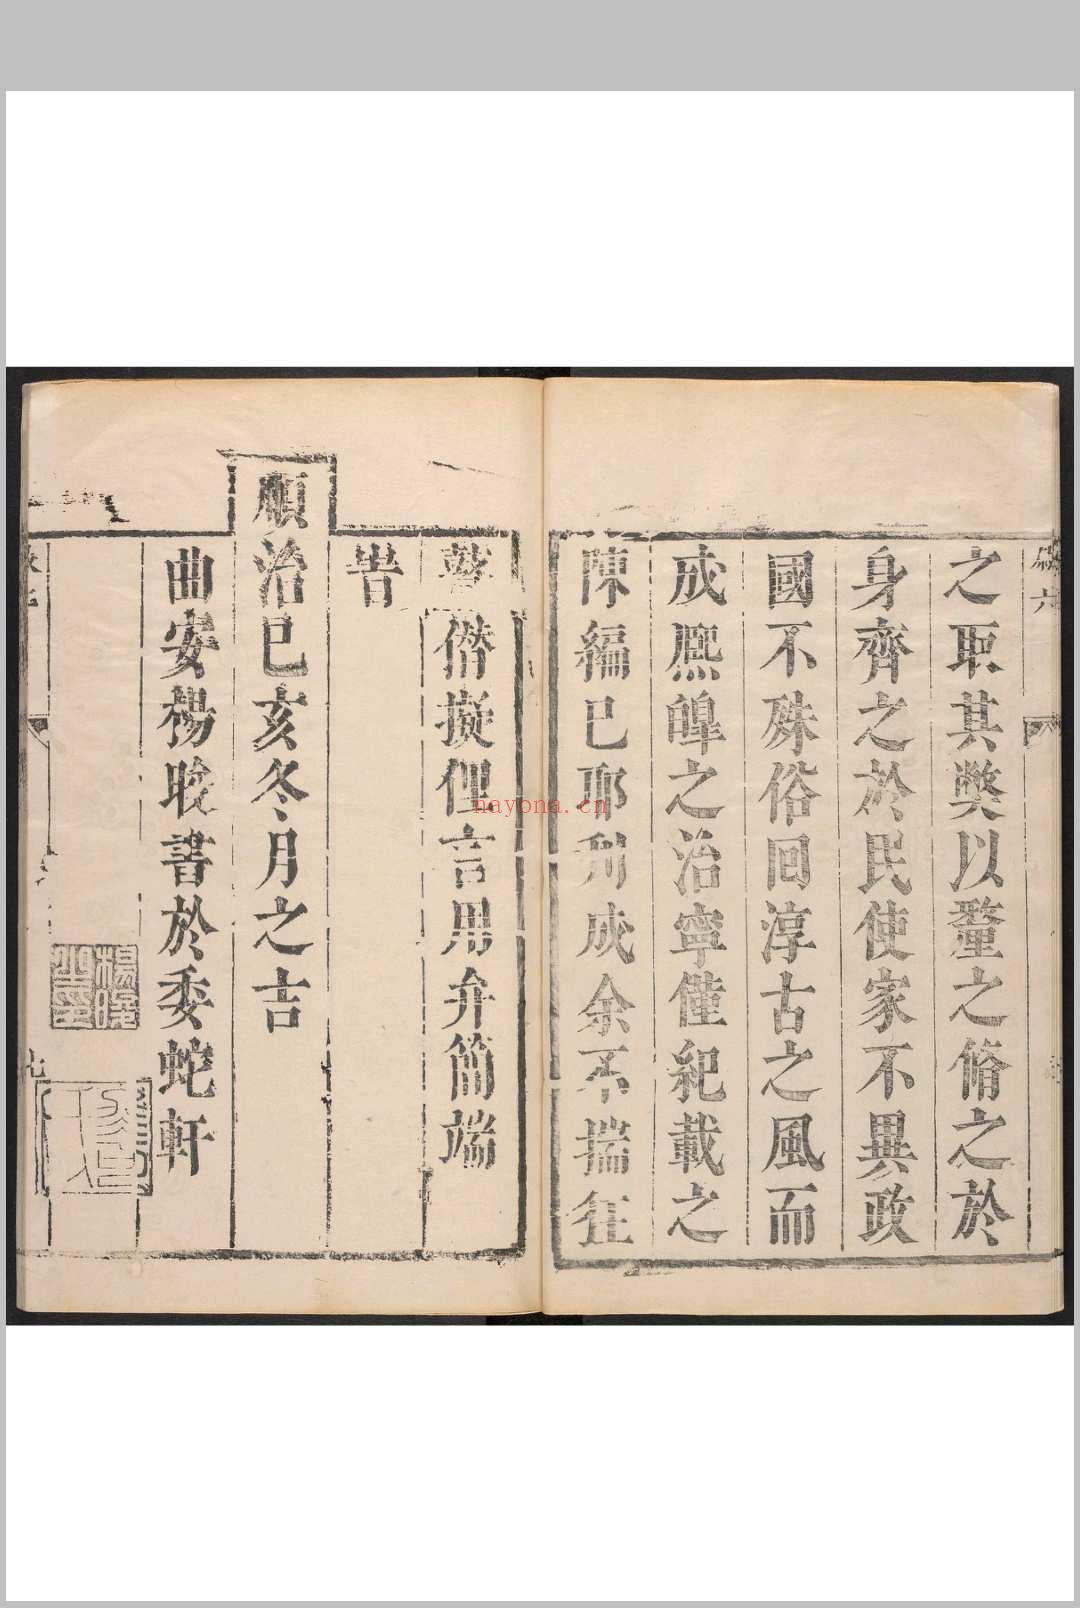 之取其獘以釐之脩之於
身齊之於民使家不異政
國不殊俗回淳古之風而
成熈皥之治寧僅紀載之
陳編已耶刋成余不揣狂
瞽僭擬俚言用弁簡端
旹
順治己亥冬月之吉
曲安楊晙書於委蛇軒
nayona.cn